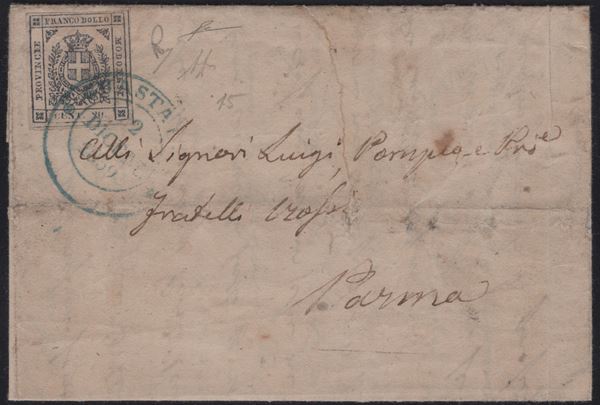 FRANCO BOLLO
PROVINCIE
MODONESI
CENT. 20
STA
2
DIC
59
15
Alli Signori Luigi, Pompeo e
fratelli
Parma